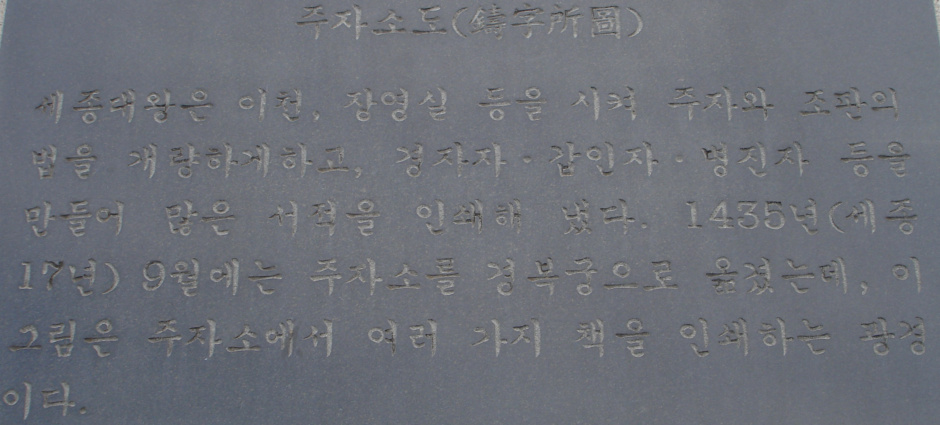 주자소도(鑄字所圖)
세종대왕은 이천, 장영실 등을 시켜 주자와 조판의
법을 개량하게하고, 경자자·갑인자·병진자 등을
만들어 많은 서적을 인쇄해 냈다. 1435년(세종
17년) 9월에는 주자소를 경복궁으로 옮겼는데, 이
그림은 주자소에서 여러 가지 책을 인쇄하는 광경
이다.